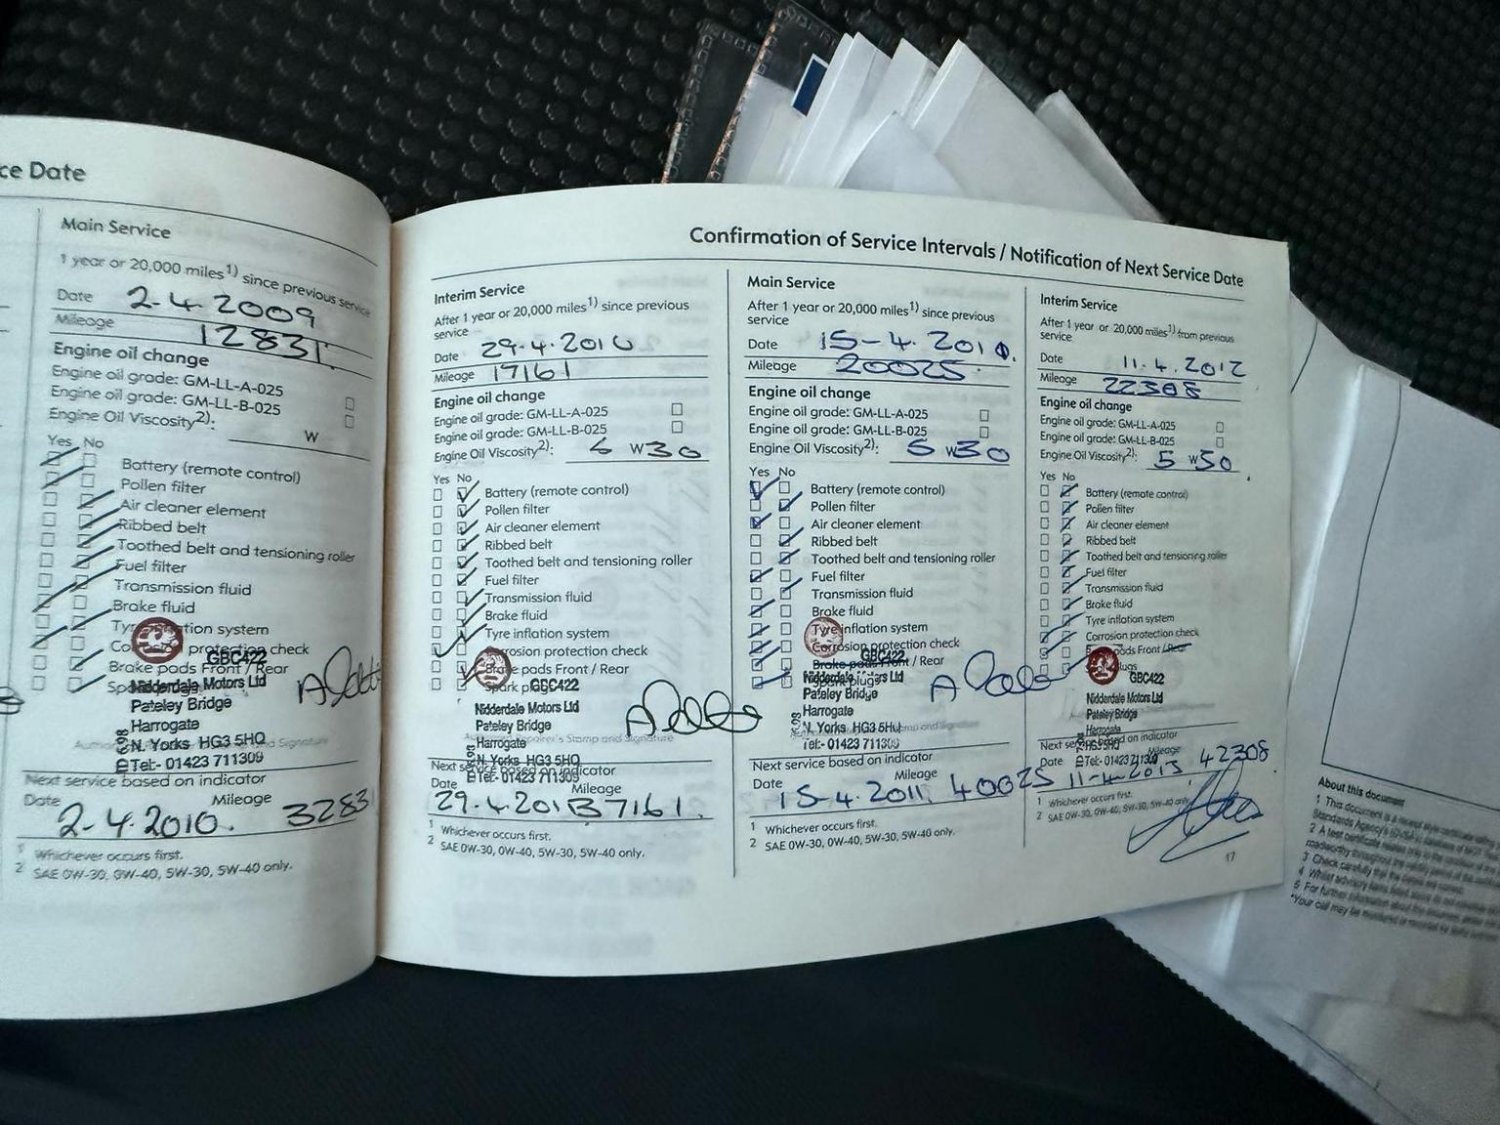 ce Date
Main Service
1 year or 20,000 miles1) since previous service
Date 2-4-2009
Mileage 12831
Engine oil change
Engine oil grade: GM-LL-A-025
Engine oil grade: GM-LL-B-025
Engine Oil Viscosity2): W
Yes No
Battery (remote control)
Pollen filter
Air cleaner element
Ribbed belt
Toothed belt and tensioning roller
Fuel filter
Transmission fluid
Brake fluid
Brake pads Front / Rear
GBC422
Nidderdale Motors Ltd
Pateley Bridge
Harrogate
N. Yorks HG3 5HQ
Tel:- 01423 711309
Next service based on indicator
Date Mileage
2-4-2010. 3283
1 Whichever occurs first.
2 SAE 0W-30, 0W-40, 5W-30, 5W-40 only.
Confirmation of Service Intervals / Notification of Next Service Date
Interim Service
After 1 year or 20,000 miles1) since previous
service
Date 29.4.2010
Mileage 17161
Engine oil change
Engine oil grade: GM-LL-A-025
Engine oil grade: GM-LL-B-025
Engine Oil Viscosity2): W30
Yes No
Battery (remote control)
Pollen filter
Air cleaner element
Ribbed belt
Toothed belt and tensioning roller
Fuel filter
Transmission fluid
Brake fluid
Tyre inflation system
Corrosion protection check
Brake pads Front / Rear
Spark plugs
GBC422
Nidderdale Motors Ltd
Pateley Bridge
Authorised Repairer's Stamp and Signature
Harrogate
N. Yorks HG3 5HQ
Next service based on indicator
Tel:- 01423 711309
Date Mileage
29.4.201 37161.
1 Whichever occurs first.
2 SAE 0W-30, 0W-40, 5W-30, 5W-40 only.
Main Service
After 1 year or 20,000 miles1) since previous
service
Date 15-4.201
Mileage 20025
Engine oil change
Engine oil grade: GM-LL-A-025
Engine oil grade: GM-LL-B-025
Engine Oil Viscosity2): 5 W30
Yes No
Battery (remote control)
Pollen filter
Air cleaner element
Ribbed belt
Toothed belt and tensioning roller
Fuel filter
Transmission fluid
Brake fluid
Tyre inflation system
Corrosion protection check
GBC422
Brake pads Front / Rear
Nidderdale Motors Ltd
Pateley Bridge
Harrogate
N. Yorks HG3 5HQ
Tel:- 01423 711309
Next service based on indicator
Date Mileage
15-4.2011. 40025
1 Whichever occurs first.
2 SAE 0W-30, 0W-40, 5W-30, 5W-40 only.
Interim Service
After 1 year or 20,000 miles1) from previous
service
Date 11.4.2012
Mileage 22308
Engine oil change
Engine oil grade: GM-LL-A-025
Engine oil grade: GM-LL-B-025
Engine Oil Viscosity2): 5 W30
Yes No
Battery (remote control)
Pollen filter
Air cleaner element
Ribbed belt
Toothed belt and tensioning roller
Fuel filter
Transmission fluid
Brake fluid
Tyre inflation system
Corrosion protection check
pads Front / Rear
GBC422
Nidderdale Motors Ltd
Pateley Bridge
Harrogate
HG3 5HQ
Next service based on indicator
Tel:- 01423 711309
Date Mileage
11-4-2013 42308
1 Whichever occurs first.
2 SAE 0W-30, 0W-40, 5W-30, 5W-40 only.
17
About this document
1 This document is a receipt style certificate